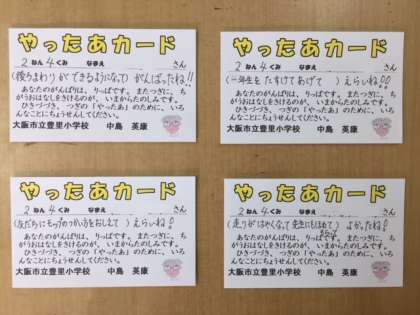 やったあカード
2 ねん 4 くみ なまえ さん
(後りまわり が できるようになって) がんばったね!!
あなたのがんばりは、りっぱです。またつぎに、ち
がうおはなしをきけるのが、いまからたのしみです。
ひきつづき、つぎの「やったあ」のために、いろ
んなことにちょうせんしてください。
大阪市立豊里小学校 中島 英康
やったあカード
2 ねん 4 くみ なまえ さん
(一年生を たすけてあげて ) えらいね!!
あなたのがんばりは、りっぱです。またつぎに、ち
がうおはなしをきけるのが、いまからたのしみです。
ひきつづき、つぎの「やったあ」のために、いろ
んなことにちょうせんしてください。
大阪市立豊里小学校 中島 英康
やったあカード
2 ねん 4 くみ なまえ さん
(友だちに モップのつかい方を おしえて ) えらいね!
あなたのがんばりは、りっぱです。またつぎに、ち
がうおはなしをきけるのが、いまからたのしみです。
ひきつづき、つぎの「やったあ」のために、いろ
んなことにちょうせんしてください。
大阪市立豊里小学校 中島 英康
やったあカード
2 ねん 4 くみ なまえ さん
(走りが はやくなって 先生にもほめて ) よかったね!
あなたのがんばりは、りっぱです。またつぎに、ち
がうおはなしをきけるのが、いまからたのしみです。
ひきつづき、つぎの「やったあ」のために、いろ
んなことにちょうせんしてください。
大阪市立豊里小学校 中島 英康